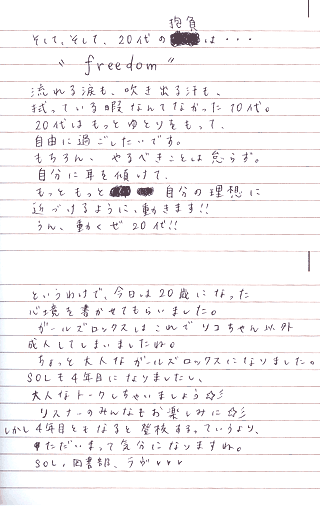 抱負
そして、そして、20代の は・・・
"freedom"
流れる涙も、吹き出る汗も、
拭っている暇なんてなかった10代。
20代はもっとゆとりをもって、
自由に過ごしたいです。
もちろん、やるべきことは怠らず。
自分に耳を傾けて、
もっともっと 自分の理想に
近づけるように、動きます!!
うん、動くぜ20代!!
というわけで、今日は20歳になった
心境を書かせてもらいました。
ガールズロックスはこれでリコちゃん以外
成人してしまいましたね。
ちょっと大人なガールズロックスになりました。
SOLも4年目になりましたし、
大人なトークしちゃいましょう☆彡
リスナーのみんなもお楽しみに☆彡
しかし4年目ともなると登校するっていうより、
ただいまって気分になりますね。
SOL、図書部、ラヴ♥♥♥